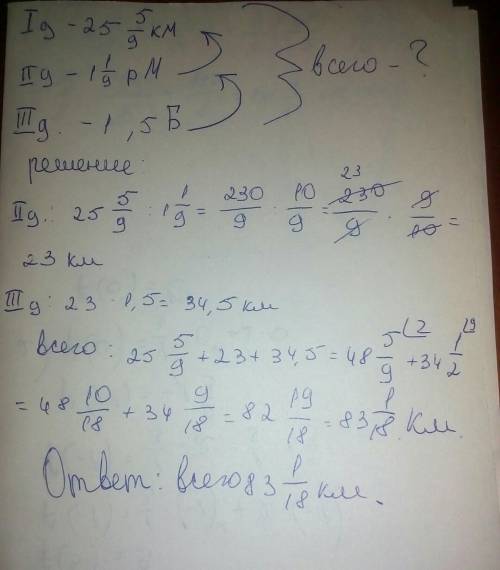 I д - 25 5/9 км
II д - 1 1/9 р М
III д. - 1,5 Б
всего - ?
решение:
II д.: 25 5/9 : 1 1/9 = 230/9 : 10/9 = 23 230/9 · 9/10 =
23 км
III д: 23 · 1,5 = 34,5 км
всего: 25 5/9 + 23 + 34,5 = 48 5/9 (2 + 34 1/2 (9
= 48 10/18 + 34 9/18 = 82 19/18 = 83 1/18 км.
Ответ: всего 83 1/18 км.